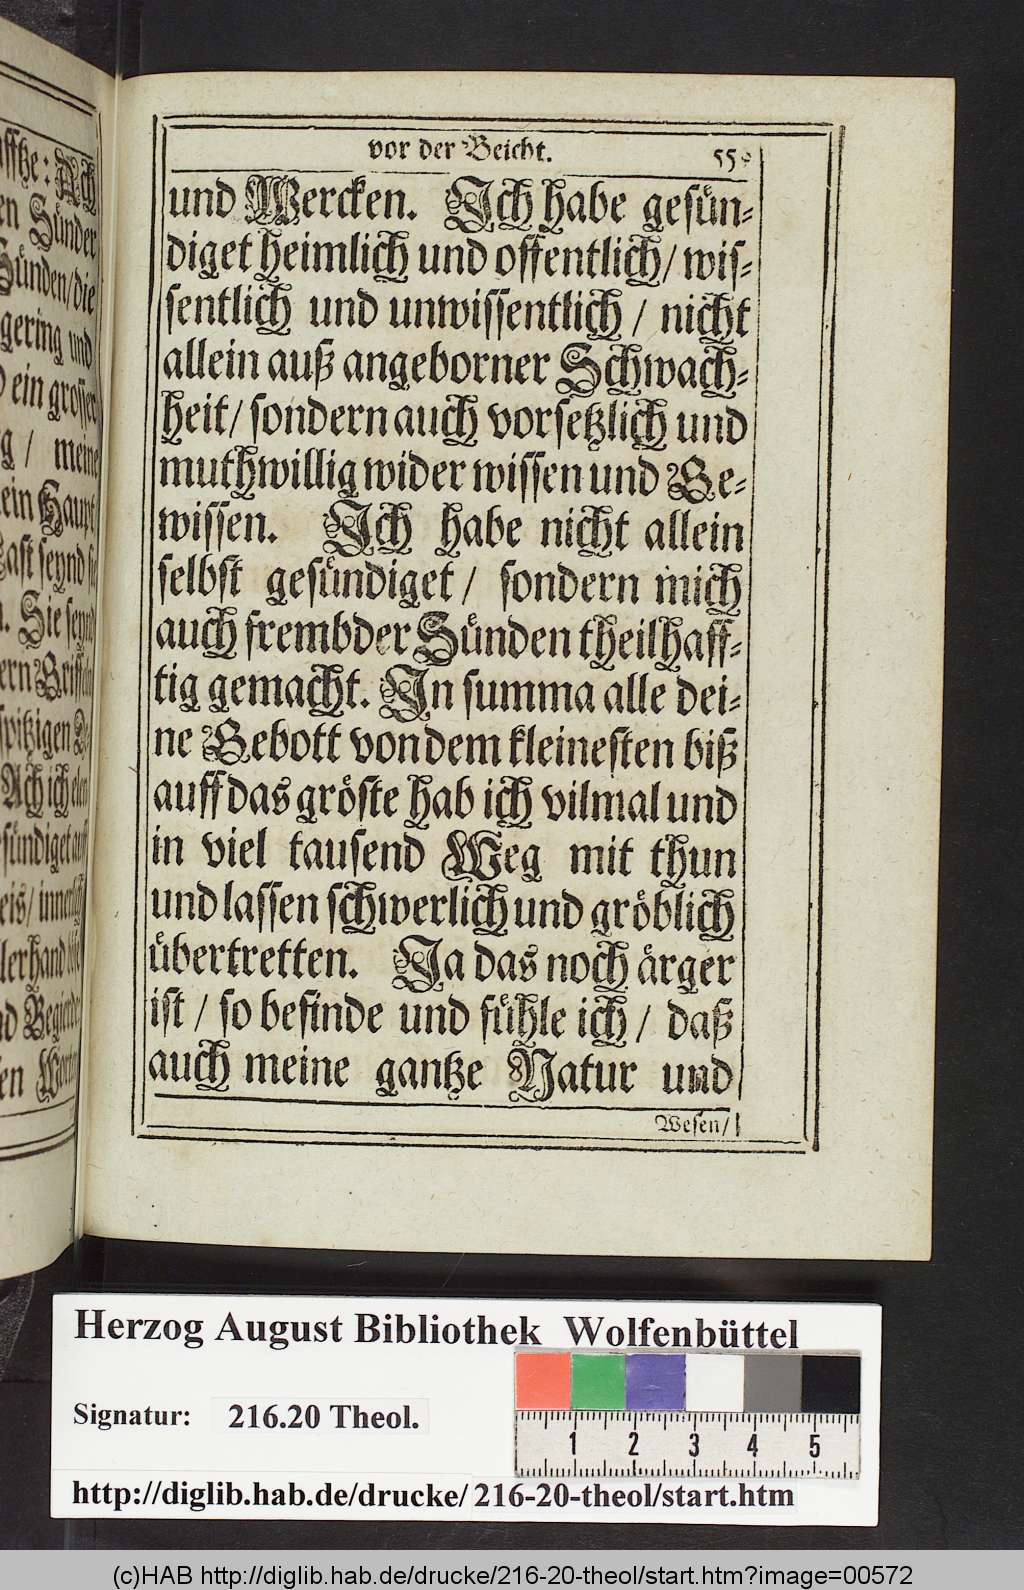 vor der Beicht. 55
und Wercken. Ich habe gesün-
diget heimlich und offentlich/ wis-
sentlich und unwissentlich / nicht
allein auß angeborner Schwach-
heit/ sondern auch vorsetzlich und
muthwillig wider wissen und Ge-
wissen. Ich habe nicht allein
selbst gesündiget / sondern mich
auch frembder Sünden theilhaff-
tig gemacht. In summa alle dei-
ne Gebott von dem kleinesten biß
auff das gröste hab ich vilmal und
in viel tausend Weg mit thun
und lassen schwerlich und gröblich
übertretten. Ja das noch ärger
ist / so befinde und fühle ich / daß
auch meine gantze Natur und
Wesen/
Ach
en Sünder
Sünden/die
gering und
ein grosser
/ meine
ein Haupt
Last seynd
. Sie seynd
ern Griffel
spitzigen
Ach ich elen
gesündiget auff
/ innerlich
lerhand
nd Begierde
en Worten
Herzog August Bibliothek Wolfenbüttel
Signatur: 216.20 Theol.
1 2 3 4 5
http://diglib.hab.de/drucke/216-20-theol/start.htm
(c)HAB http://diglib.hab.de/drucke/216-20-theol/start.htm?image=00572